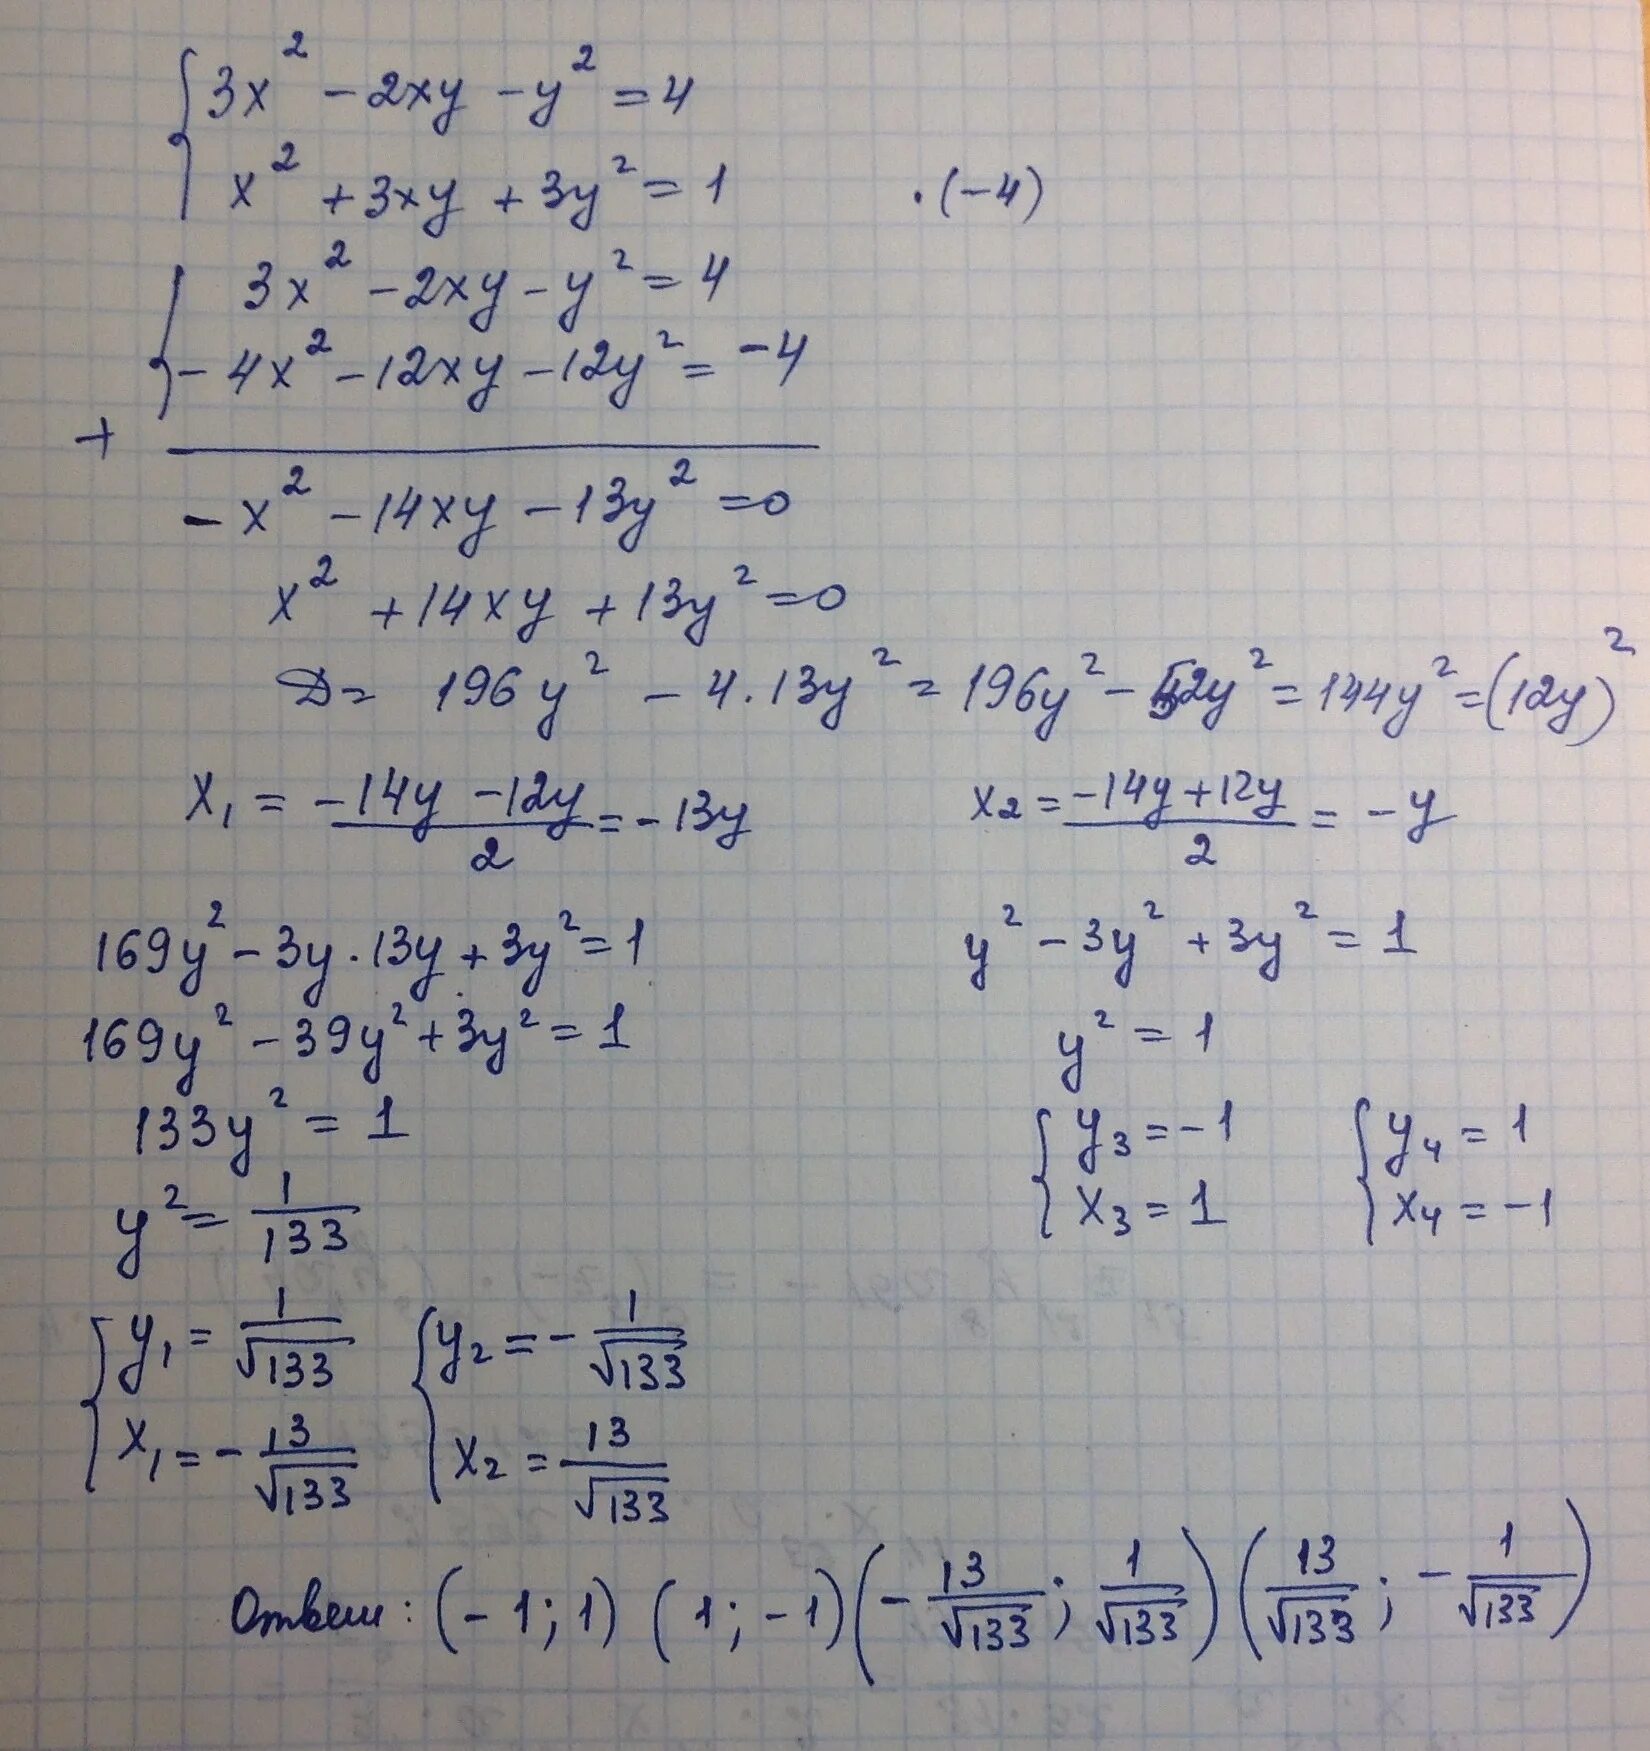 { 3x² - 2xy - y² = 4
x² + 3xy + 3y² = 1 · (-4)
{ 3x² - 2xy - y² = 4
- 4x² - 12xy - 12y² = -4
+
- x² - 14xy - 13y² = 0
x² + 14xy + 13y² = 0
D = 196y² - 4·13y² = 196y² - 52y² = 144y² = (12y)²
x₁ = (-14y - 12y)/2 = -13y
x₂ = (-14y + 12y)/2 = -y
169y² - 3y·13y + 3y² = 1
169y² - 39y² + 3y² = 1
133y² = 1
y² = 1/133
{ y₁ = 1/√133 { y₂ = - 1/√133
x₁ = - 13/√133 x₂ = 13/√133
y² - 3y² + 3y² = 1
y² = 1
{ y₃ = -1 { y₄ = 1
x₃ = 1 x₄ = -1
Ответ: (-1; 1) (1; -1) (- 13/√133; 1/√133) (13/√133; - 1/√133)